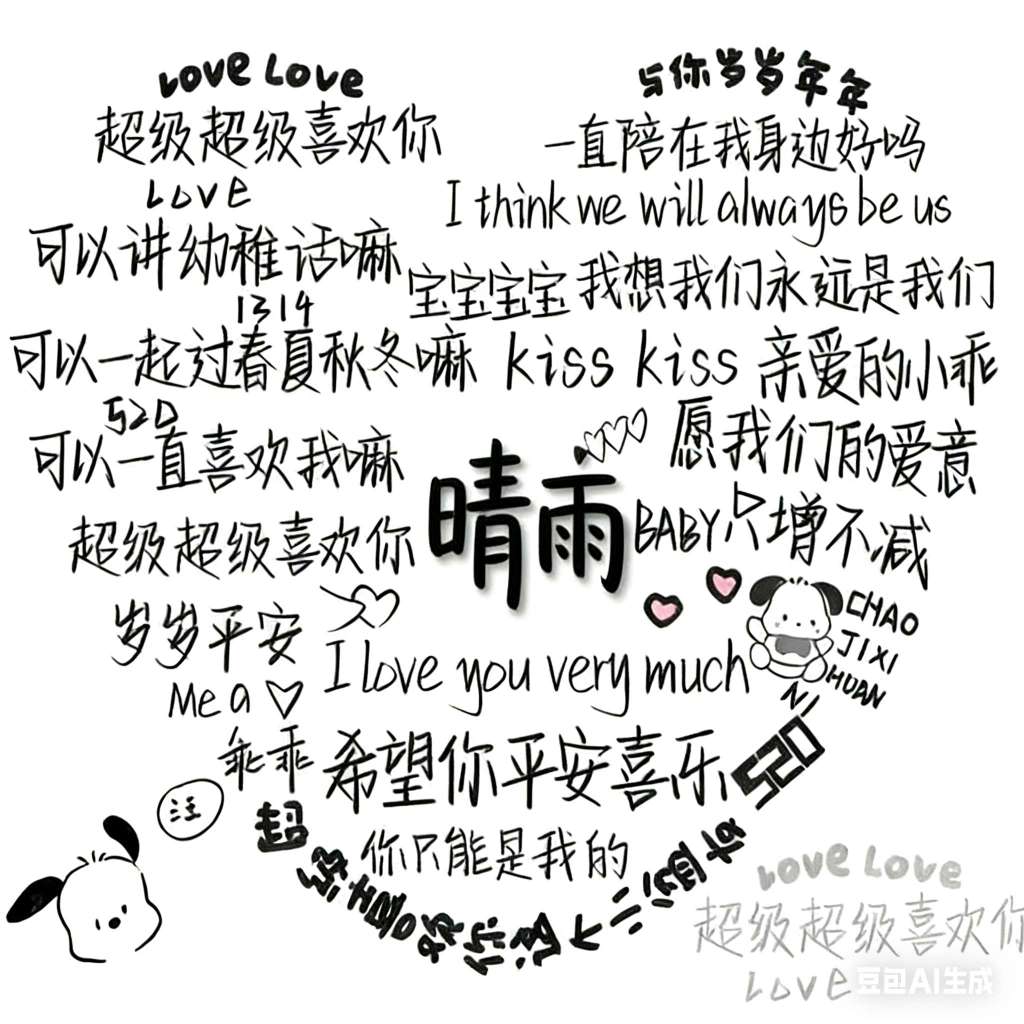 LOVE LOVE
与你岁岁年年
超级超级喜欢你
一直陪在我身边好吗
LOVE
I think we will always be us
可以讲幼稚话嘛
宝宝宝宝 我想我们永远是我们
1314
可以一起过春夏秋冬嘛 kiss kiss 亲爱的小乖
520
可以一直喜欢我嘛
愿我们的爱意
晴雨
BABY只增不减
超级超级喜欢你
岁岁平安
CHAO
JIXI
HUAN
NI
I love you very much
Me a ♡
乖乖 希望你平安喜乐
520
汪
你只能是我的
超级喜欢你
LOVE LOVE
超级超级喜欢你
LOVE
豆包AI生成